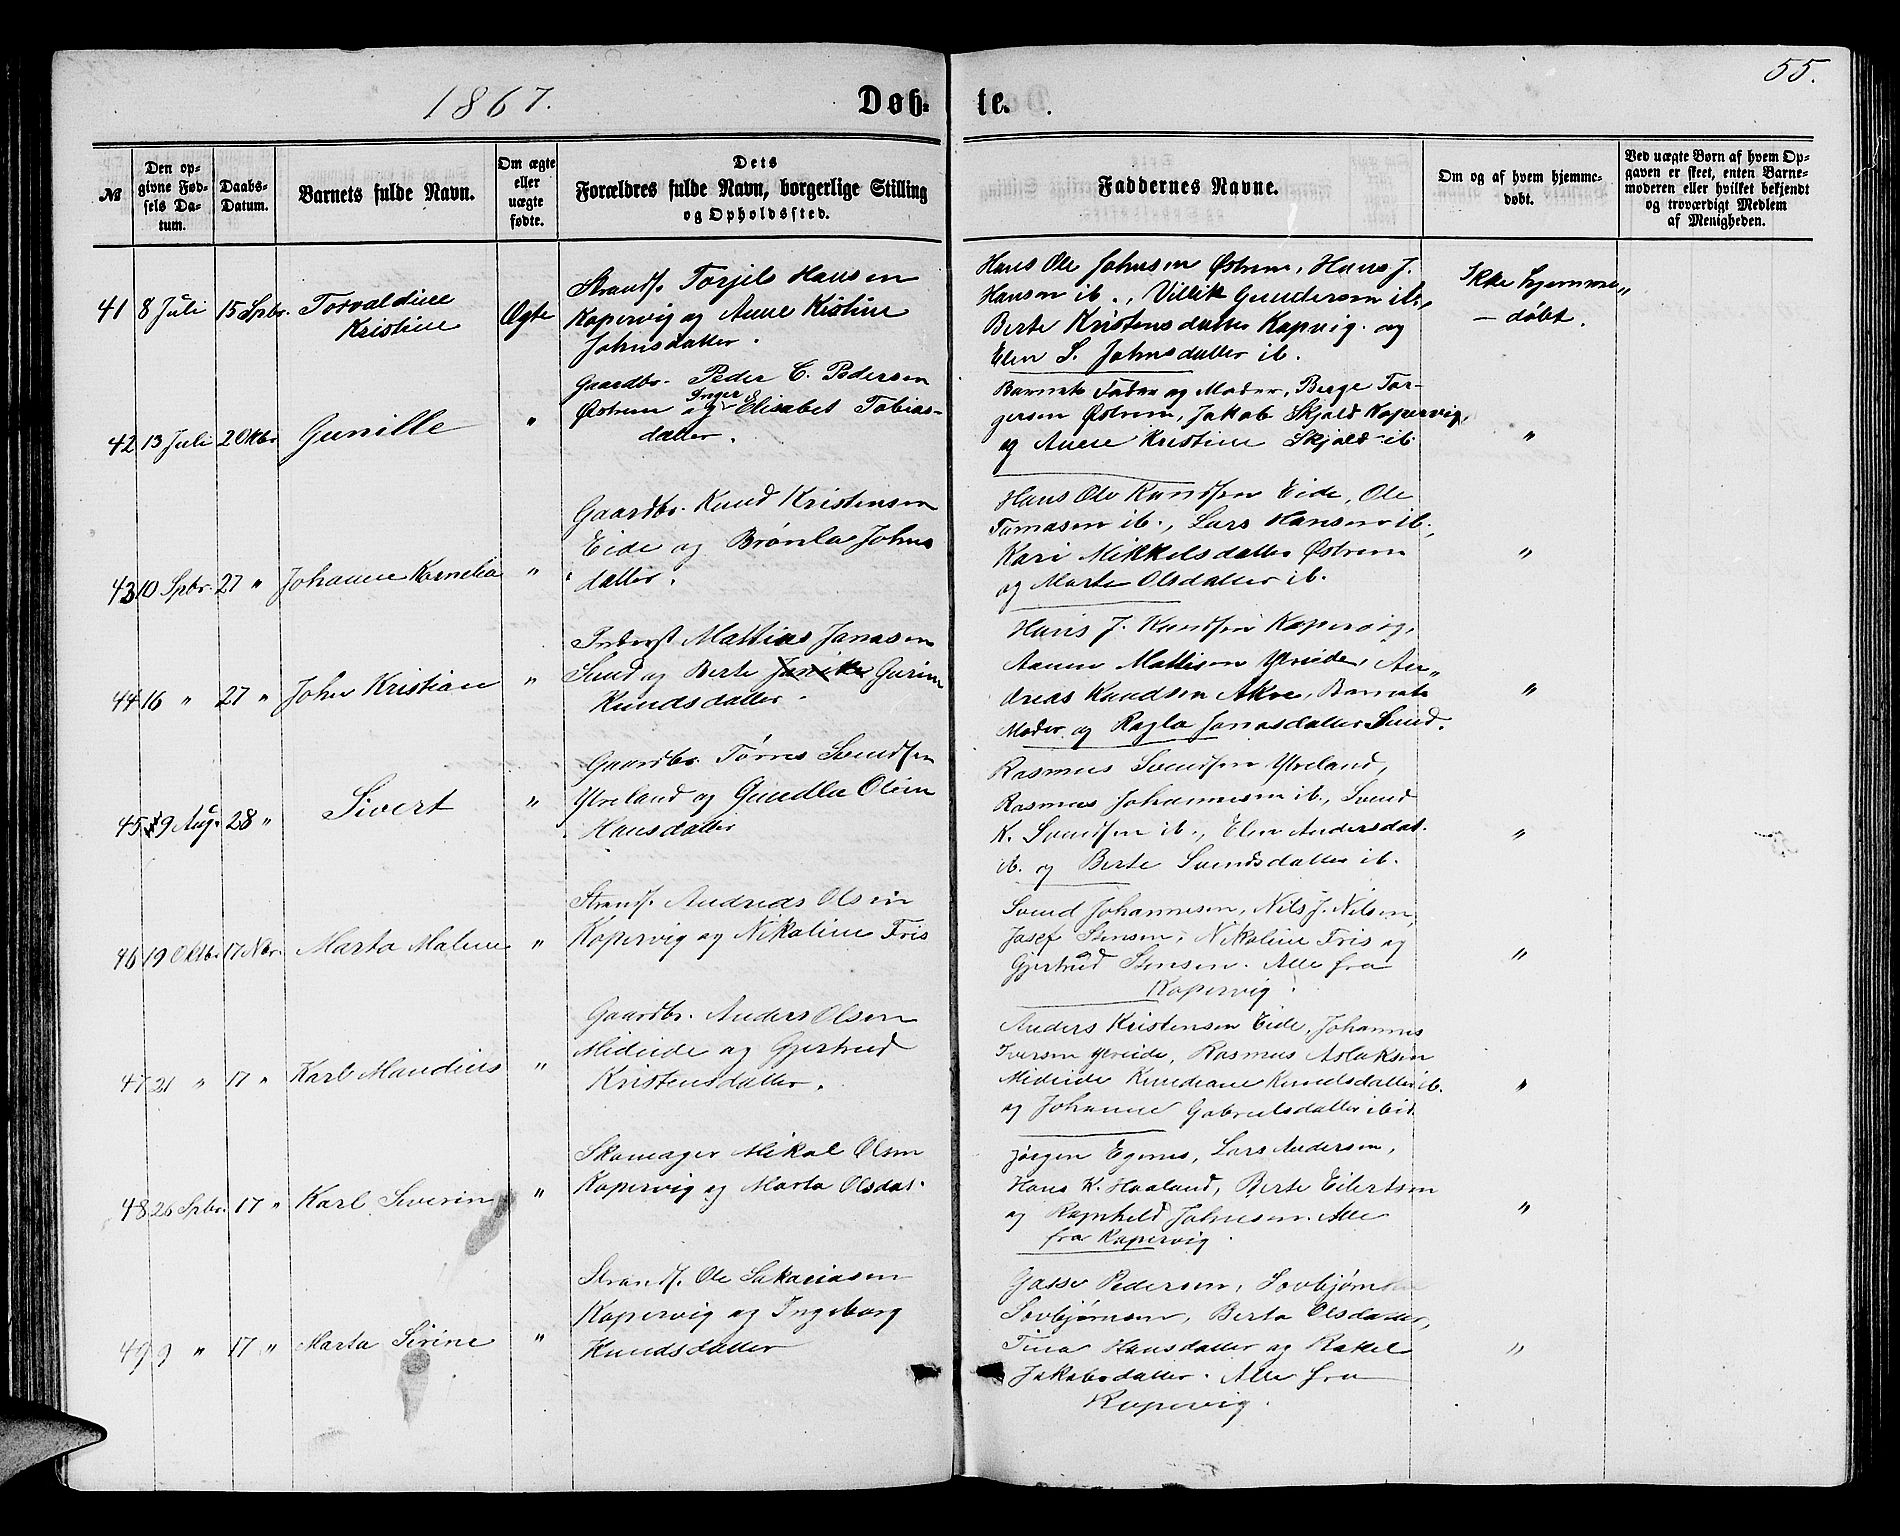 55.
1867.
Døb- te.
№
Den opgivne Fødsels Datum.
Daabs-Datum.
Barnets fulde Navn.
Om ægte eller uægte fødte.
Dets Forældres fulde Navn, borgerlige Stilling og Opholdssted.
Faddernes Navne.
Om og af hvem hjemmedøbt.
Ved uægte Børn af hvem Opgaven er skeet, enten Barnemoderen eller hvilket bekjendt og troværdigt Medlem af Menigheden.
41 8 Juli 15 Spbr. Torvaldine
Kristine
Ægte
Strands. Torjils Hansen
Kopervig og Anne Kistine
Johnsdatter.
Hans Ole Johnsen Østrem, Hans J.
Hansen ib., Villik Gundersen ib.,
Berte Kristensdatter Kopvig. og
Elen S. Johnsdatter ib.
Ikke hjemme„
– døbt.
42 13 Juli 2 Oktbr Gunille "
Gaardbr. Peder C. Pedersen
Østrem og Inger E Elisabet Tobias-
datter.
Barnets Fader og Moder, Berge Tor-
gersen Østrem, Jakob Skjold Kopervig,
og Anne Kristine Skjold ib.
"
43 10 Spbr. 27 " Johanne Kornelia "
Gaardbr. Knud Kristensen
Eide og Brønla Johns
datter.
Hans Ole Knudsen Eide, Ole
Tomasen ib., Lars Hansen ib.,
Kari Mikkelsdatter Østrem
og Marte Olsdatter ib.
"
44 16 " 27 " John Kristian "
Inderst Mattias Janasen
Sund og Berte Gurine
Knudsdatter.
Hans J. Knudsen Kopervig,
Mattisen Ytreide, An„
dreas Knudsen Akre, Barnets
Moder og Ragla Jonasdatter Sund.
"
45 9 Aug. 28 " Sivert "
Gaardbr. Tørres Svendsen
Ytreland og Gundla Oline
Hansdatter
Rasmus Svendsen Ytreland,
Rasmus Johannesen ib., Svend
K. Svendsen ib., Elen Andersdat.
ib. og Berte Svendsdatter ib.
"
46 19 Oktb. 17 Nbr. Marta Malene "
Strands. Andreas Olsen
Kopervig og Nikoline Fris
Svend Johannesen, Nils J. Nilsen,
Josef Stensen, Nikoline Fris og
Gjertrud Stensen. Alle fra
Kopervig.
"
47 21 " 17 " Karl Maudius "
Gaardbr. Anders Olsen
Mideide og Gjertrud
Kristensdatter.
Anders Kristensen Eide, Johannes
Iversen Ytreide, Rasmus Aslaksen
Mideide Knudsdatter ib.
og Johanne Gabrielsdatter ibid.
"
48 26 Spbr. 17 " Karl Severin "
Skomager Mikal Olsen
Kopervig og Marta Olsdat.
Jørgen Egenes, Lars Andersen,
Hans K. Haaland, Berte Eilertsen
og Ragnhild Johnsen. Alle
fra Kopervig.
"
49 9 " 17 " Marta Sirine "
Strands. Ole Sakariasen
Kopervig og Ingeborg
Knudsdatter
Gasse Pedersen,
Sovbjørnsen, Berta Olsdatter,
Tina Hansdatter og Rakel
Jakobsdatter. Alle fra
Kopervig.
"